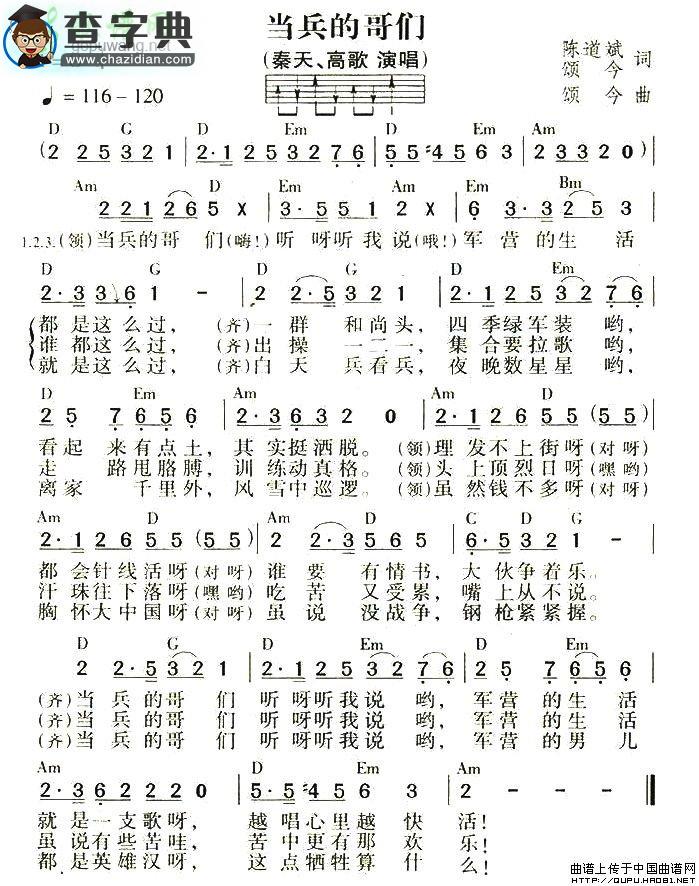 当兵的哥们
查字典
www.chazidian.com
(秦天、高歌 演唱)
陈道斌 词
颂今
颂今 曲
♩= 116－120
D G D Em D Em Am
( 2 2 5 3 2 1 | 2·1 2 5 3 2 7 6 | 5·5 ♯4 5 6 3 | 2 3 3 2 0 )
Am D Em Am Em Bm
2 2 1 2 6 5 X | 3·5 5 1 2 X | 6 3·3 2 5 3
1.2.3.(领)当兵的哥 们(嗨!)听 呀听我说(哦!)军 营的生 活
D G D G D Em
2·3 3 6 1 － | 2 2·5 3 2 1 | 2·1 2 5 3 2 7 6
都 是这么过, (齐)一 群 和尚头, 四 季绿军装 哟,
谁 都这么过, (齐)出 操 一二一, 集 合要拉歌 哟,
就 是这么过, (齐)白 天 兵看兵, 夜 晚数星星 哟,
D Em Am D
2 5 7 6 5 6 | 2·3 6 3 2 0 | 2·1 2 6 5 5 (5 5)
看起 来有点土, 其 实挺洒脱。 (领)理 发不上街呀(对呀)
走 路甩胳膊, 训 练动真格。 (领)头 上顶烈日呀(嘿哟)
离家 千里外, 风 雪中巡逻。 (领)虽 然钱不多呀(对呀)
Am D Am D C D G
2·1 2 6 5 5 (5 5) | 2 2·3 5 6 5 | 6·5 3 2 1 －
都 会针线活呀(对呀) 谁 要 有情书, 大 伙争着乐。
汗 珠往下落呀(嘿哟) 吃 苦 又受累, 嘴 上从不说。
胸 怀大中国呀(对呀) 虽 说 没战争, 钢 枪紧紧握。
D G D Em D Em
2 2·5 3 2 1 | 2·1 2 5 3 2 7 6 | 2 5 7 6 5 6
(齐)当 兵 的哥 们 听 呀听我说 哟, 军 营的生活
(齐)当 兵 的哥 们 听 呀听我说 哟, 军 营的生活
(齐)当 兵 的哥 们 听 呀听我说 哟, 军 营的男儿
Am D Em Am
2·3 6 2 2 2 0 | 5·5 ♯4 5 6 3 | 2 － － －
就 是一支歌呀, 越 唱心里越 快 活!
虽 说有些苦哇, 苦 中更有那 欢 乐!
都 是英雄汉呀, 这 点牺牲算 什 么!
曲谱上传于中国曲谱网
HTTP://QUPU.HAO81.NET